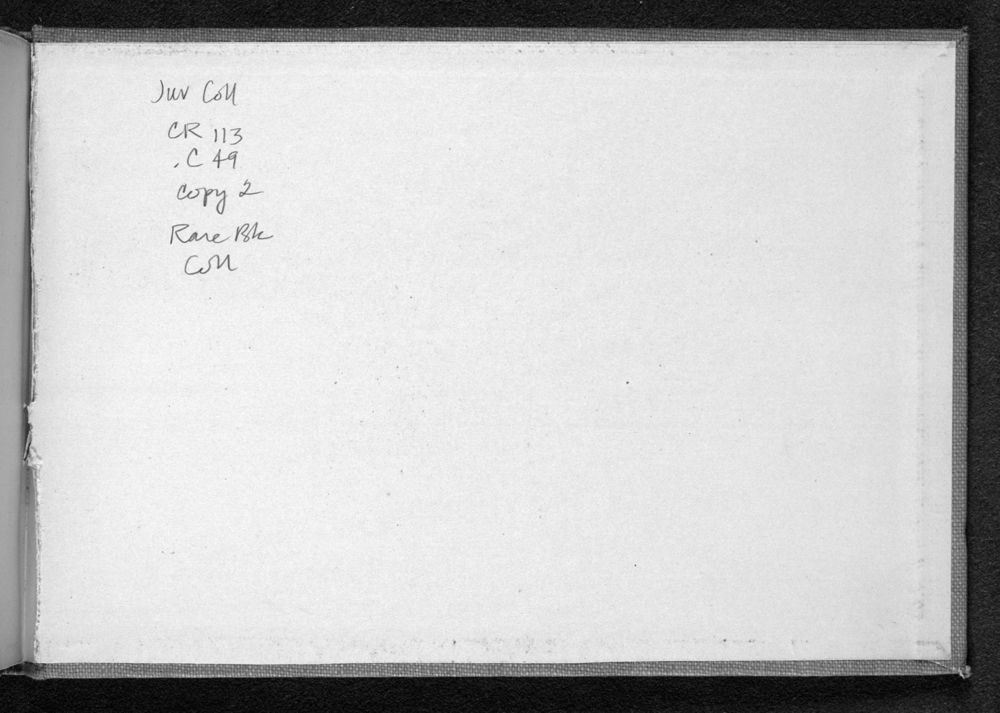 Juv Coll
CR 113
.C 49
copy 2
Rare Bk
Coll